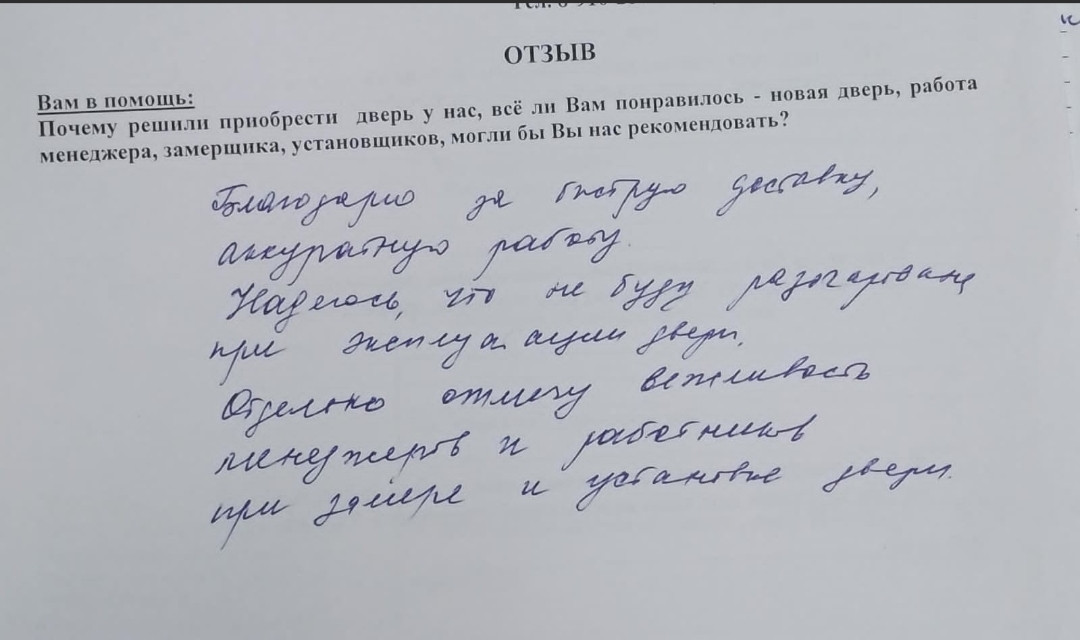 ОТЗЫВ
Вам в помощь:
Почему решили приобрести дверь у нас, всё ли Вам понравилось - новая дверь, работа
менеджера, замерщика, установщиков, могли бы Вы нас рекомендовать?
Благодарю за быструю доставку,
аккуратную работу.
Надеюсь, что не буду разочарована
при эксплуатации двери.
Отдельно отмечу вежливость
менеджеров и работников
при замере и установке двери.